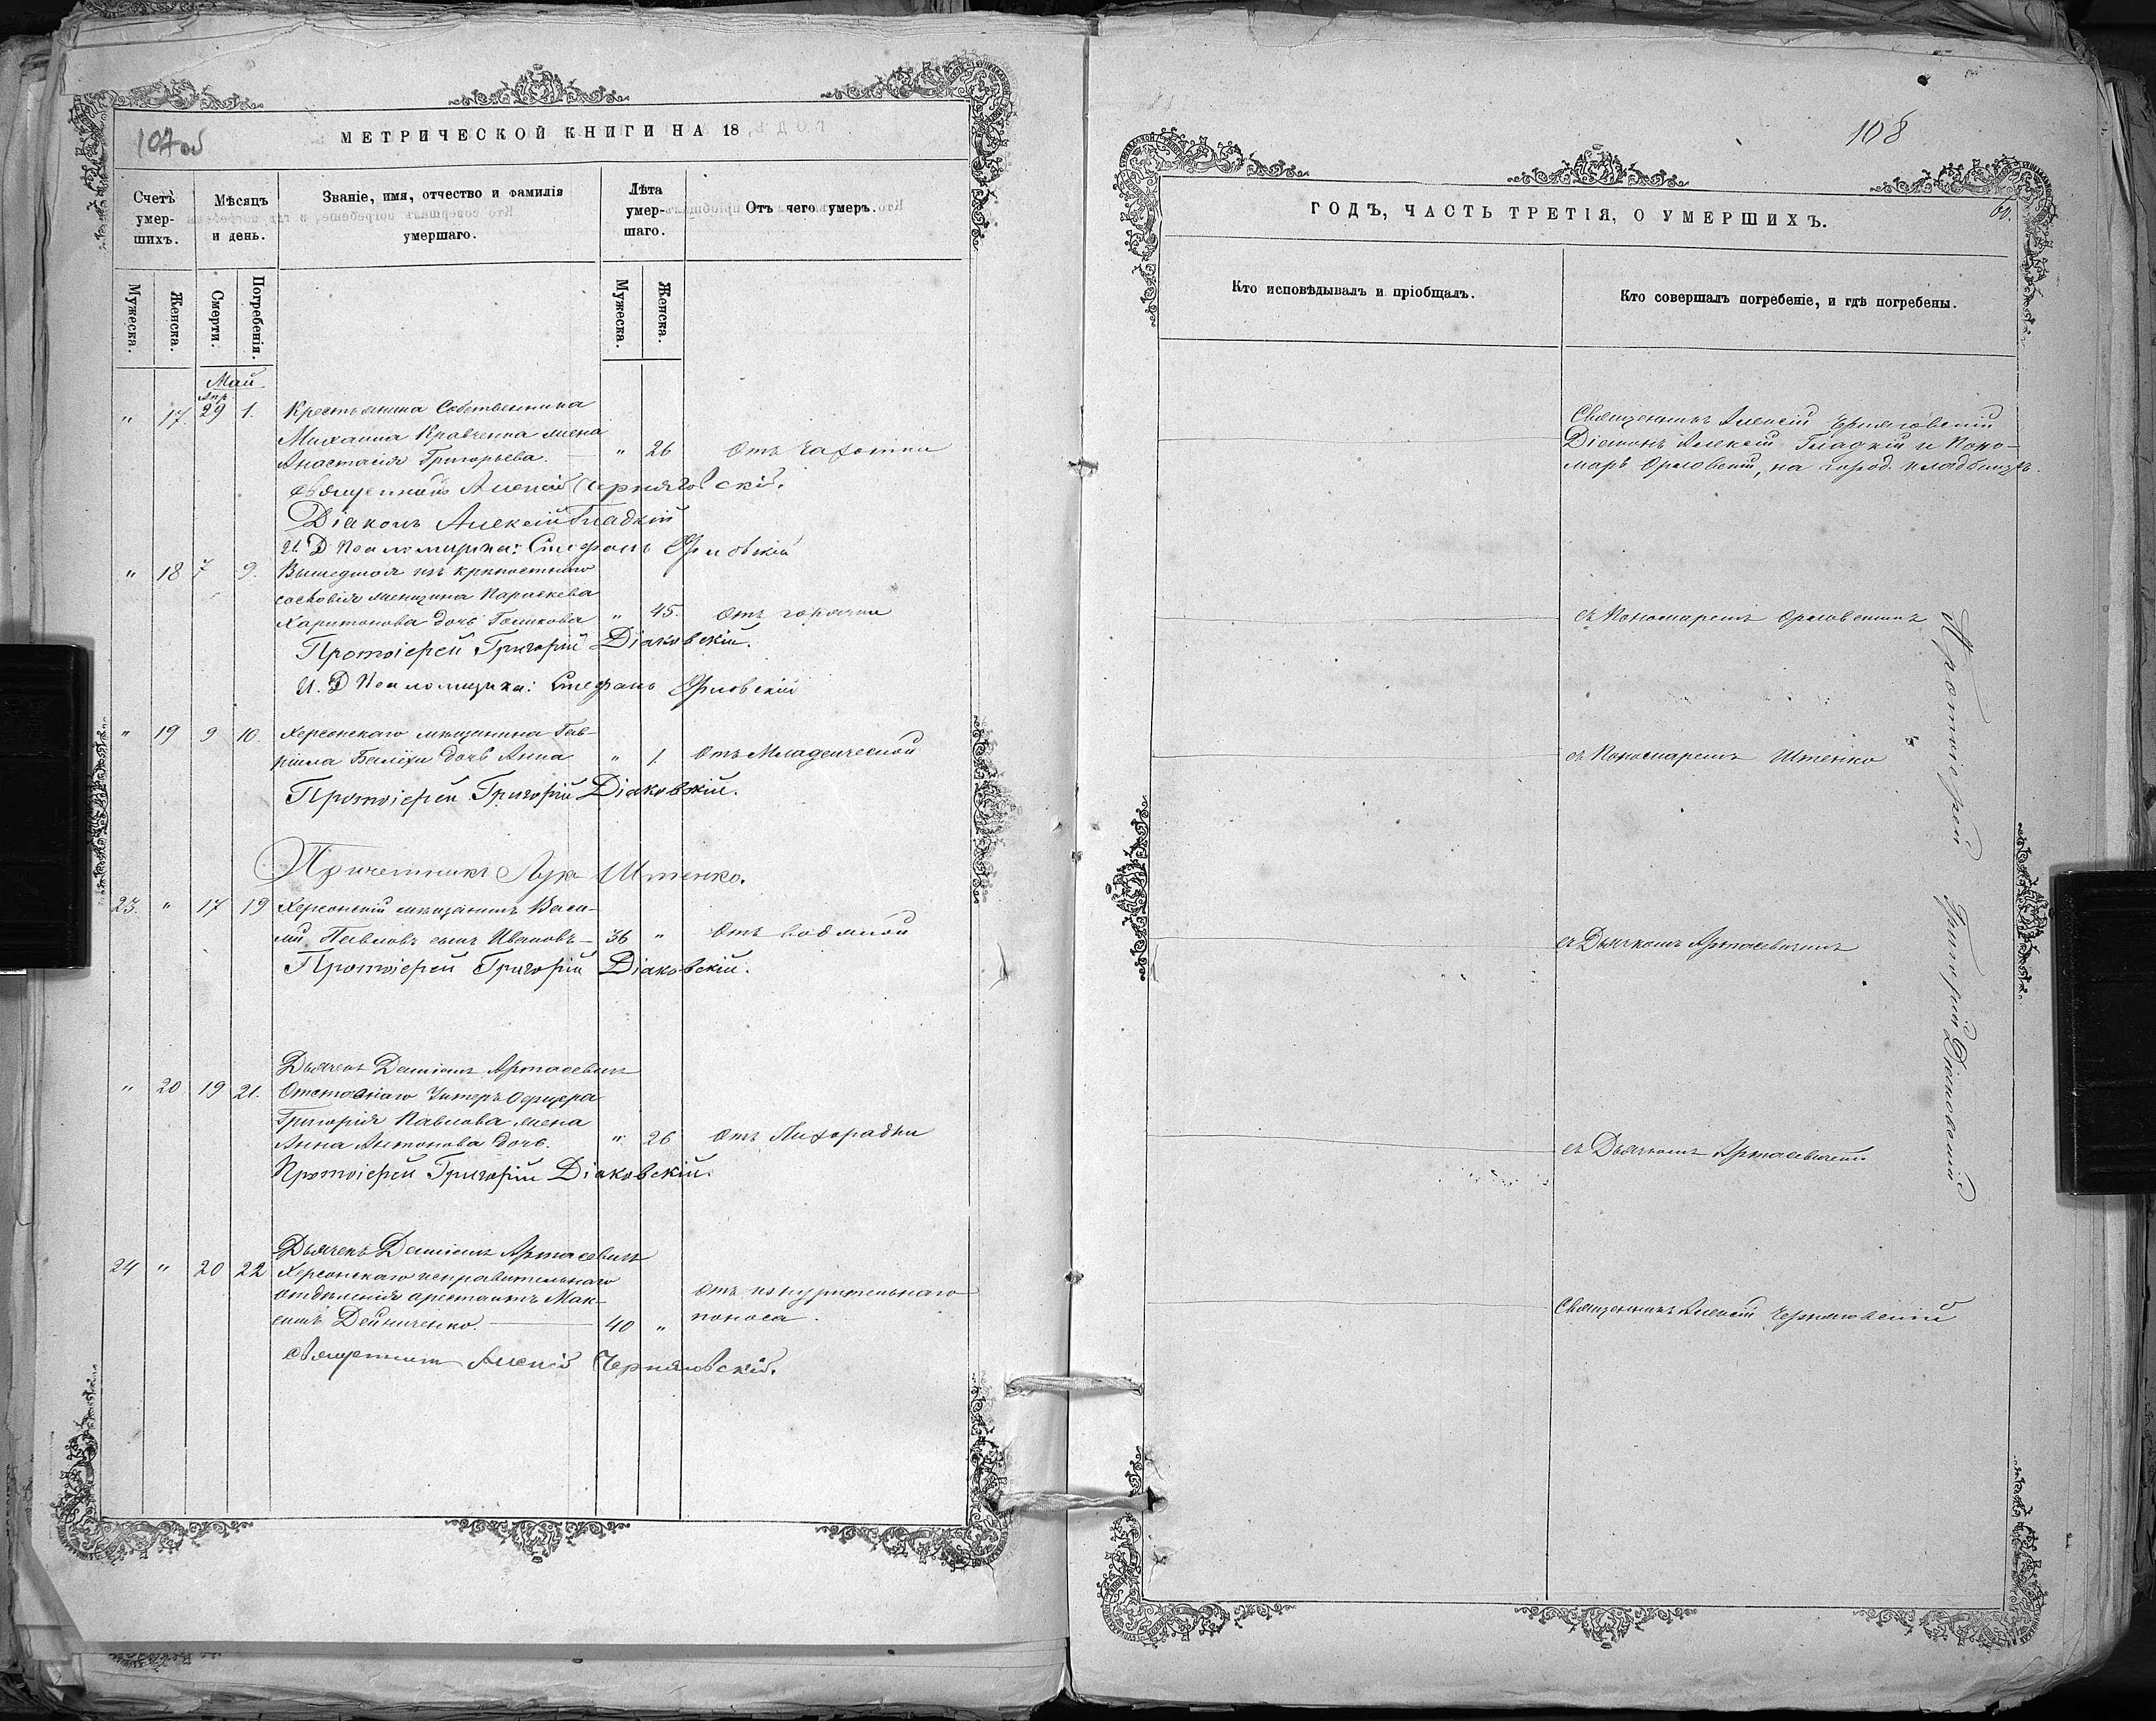 107 об
МЕТРИЧЕСКОЙ КНИГИ НА 18
Счетъ умер- шихъ.
Мѣсяцъ и день.
Званіе, имя, отчество и фамилія умершаго.
Лѣта умер- шаго.
Отъ чего умеръ.
Мужеска.
Женска.
Смерти.
Погребенія.
Мужеска.
Женска.
Май
Апр
" 17. 29 1. Крестьянина Собственника
Михаила Кравченка жена
Анастасія Григорьева. " 26 Отъ Чахотки
Священникъ Алексій Черняговскій.
Діаконъ Алексій Гладкій
И. Д. Псаломщика: Стефанъ Орловскій
" 18 7 9. Вышедшая изъ крѣпостнаго
сословія женщина Параскева
Харитонова дочь " 45. Отъ горячки
Протоіерей Григорій Діаковскій.
И. Д. Псаломщика: Стефанъ Орловскій
" 19 9 10. Херсонскаго мѣщанина Гав-
ріила дочь Анна " 1. Отъ Младенческой
Протоіерей Григорій Діаковскій.
Причетникъ Лука Штенко.
23. " 17 19 Херсонскій мѣщанинъ Васи-
лій Павловъ сынъ Ивановъ 36 " Отъ водяной
Протоіерей Григорій Діаковскій.
Дьячекъ Даміанъ
" 20 19 21. Отставнаго Унтеръ Офицера
Григорія Павлова жена
Анна Антонова дочь. " 26 Отъ Лихорадки
Протоіерей Григорій Діаковскій.
Дьячекъ Даміанъ
24 " 20 22 Херсонскаго исправительнаго
отдѣленія арестантъ Мак-
симъ Дейниченко. 40 " Отъ изнурительнаго
поноса.
Священникъ Алексій Черняговскій.
108
60.
ГОДЪ, ЧАСТЬ ТРЕТІЯ, О УМЕРШИХЪ.
Кто исповѣдывалъ и пріобщалъ.
Кто совершалъ погребеніе, и гдѣ погребены.
Священникъ Алексій Черняговскій
Діаконъ Алексій Гладкій и Поно-
марь Орловскій, на город. кладбищѣ.
съ Пономаремъ Орловскимъ
съ Пономаремъ Штенко
съ Дьячкомъ
съ Дьячкомъ
Священникъ Алексій Черняговскій
Протоіерей Григорій Діаковскій